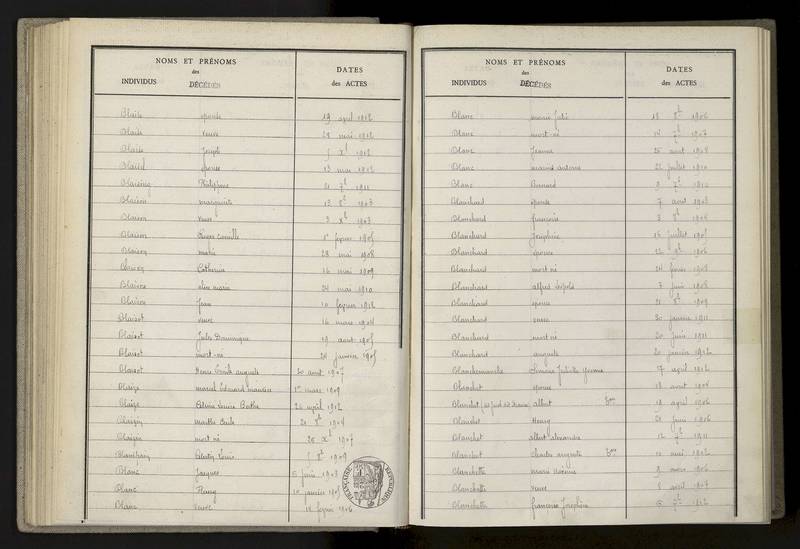 NOMS ET PRÉNOMS
des
INDIVIDUS DÉCÉDÉS
DATES
des ACTES
Blaise épouse 19 april 1912
Blaise veuve 28 mai 1912
Blaise Joseph 5 Xbre 1912
épouse 13 mai 1912
Philippine 21 7bre 1911
Blaison marguerite 13 8bre 1903
Blaison veuve 3 Xbre 1903
Blaison Roger Camille 1er février 1905
Blaison marie 28 mai 1908
Blaison Catherine 16 mai 1909
Blaison aline marie 24 mai 1910
Blaison Jean 10 février 1912
Blaisot veuve 16 mars 1904
Blaisot Jules Dominique 19 août 1905
Blaisot mort-né 24 janvier 1905
Blaisot Henri Emile auguste 20 août 1907
Blaize marcel Edouard maurice 1er mars 1909
Blaize Louise Berthe 26 april 1912
marthe 21 8bre 1904
mort né 28 Xbre 1907
Louis 5 8bre 1909
Blanc Jacques 5 juin 1903
Blanc 10 janvier 1905
Blanc veuve 18 février 1906
NOMS ET PRÉNOMS
des
INDIVIDUS DÉCÉDÉS
DATES
des ACTES
Blanc marie 18 8bre 1906
Blanc mort-né 14 7bre 1907
Blanc Jeanne 25 août 1908
Blanc antoine 22 juillet 1910
Blanc Bernard 9 7bre 1910
Blanchard épouse 7 août 1903
Blanchard françoise 3 8bre 1905
Blanchard Joséphine 15 juillet 1905
Blanchard épouse 12 9bre 1906
Blanchard mort né 24 février 1908
Blanchard alfred Léopold 7 juin 1908
Blanchard épouse 21 8bre 1909
Blanchard veuve 30 janvier 1911
Blanchard mort né 20 juin 1911
Blanchard auguste 20 janvier 1912
Blanchemanche Simone Juliette Yvonne 17 april 1912
Blanchet épouse 18 août 1904
Blanchet albert 19 april 1906
Blanchet Henry 21 juin 1906
Blanchet albert alexandre 12 7bre 1911
Blanchet Charles auguste 10 mai 1912
Blanchette marie 9 1906
Blanchette veuve 8 april 1907
Blanchette françoise Joséphine 6 7bre 1912